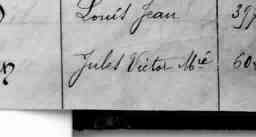 Louis Jean 397
Jules Victor Mié 60